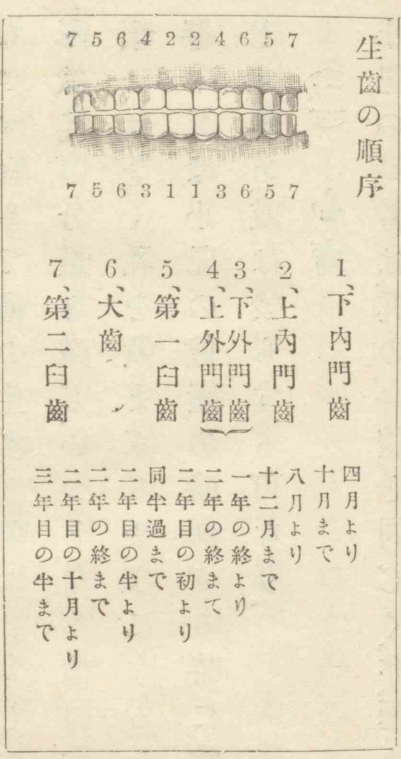 生齒の順序
7 5 6 4 2 2 4 6 5 7
7 5 6 3 1 1 3 6 5 7
1、下內門齒
四月より
十月まで
2、上內門齒
八月より
十二月まで
3、下外門齒
4、上外門齒
一年の終より
二年の終まて
5、第一臼齒
二年目の初より
同半過まで
6、犬齒
二年目の半より
二年の終まで
7、第二臼齒
二年目の十月より
三年目の半まで